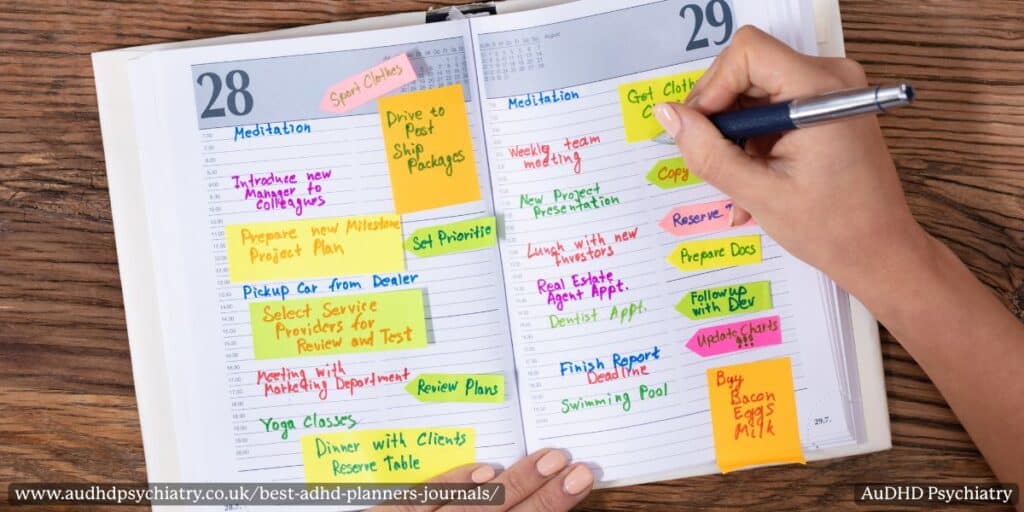 28
Sport Clothes
Meditation
Drive to
Post
Ship
Packages
Introduce new
Manager to
Colleagues
Prepare new Milestone
Project Plan
Set Prioritie
Pickup Car from Dealer
Select Service
Providers for
Review and Test
Meeting with
Marketing Department
Review Plans
Yoga Classes
Dinner with Clients
Reserve Table
29
August
Meditation
Get Cloth
Weekly team
meeting
Copy
New Project
Presentation
Reserve T
Lunch with new
Investors
Prepare Docs
Real Estate
Agent Appt.
Followup
with Dev
Dentist Appt.
Update Charts
!!!
Finish Report
Deadline
Buy
Bacon
Eggs
Milk
Swimming Pool
29.7.
28.7.
www.audhdpsychiatry.co.uk/best-adhd-planners-journals/
AuDHD Psychiatry